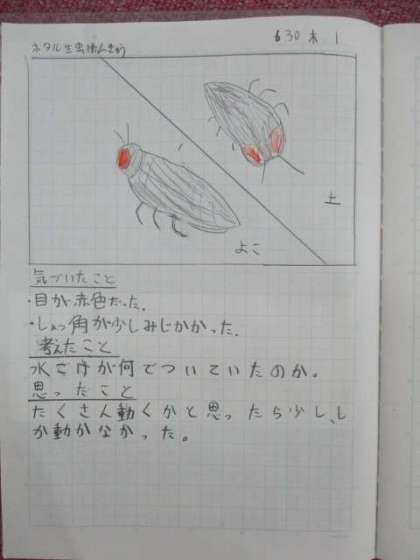 6 30 木 1
ホタル生虫けんきゅう
土
よこ
気づいたこと
・目が赤色だった.
・しょっ角が少しみじかかった.
考えたこと
水ごけが何でついていたのか。
思ったこと
たくさん動くかと思ったら少し、し
か動かなかった。